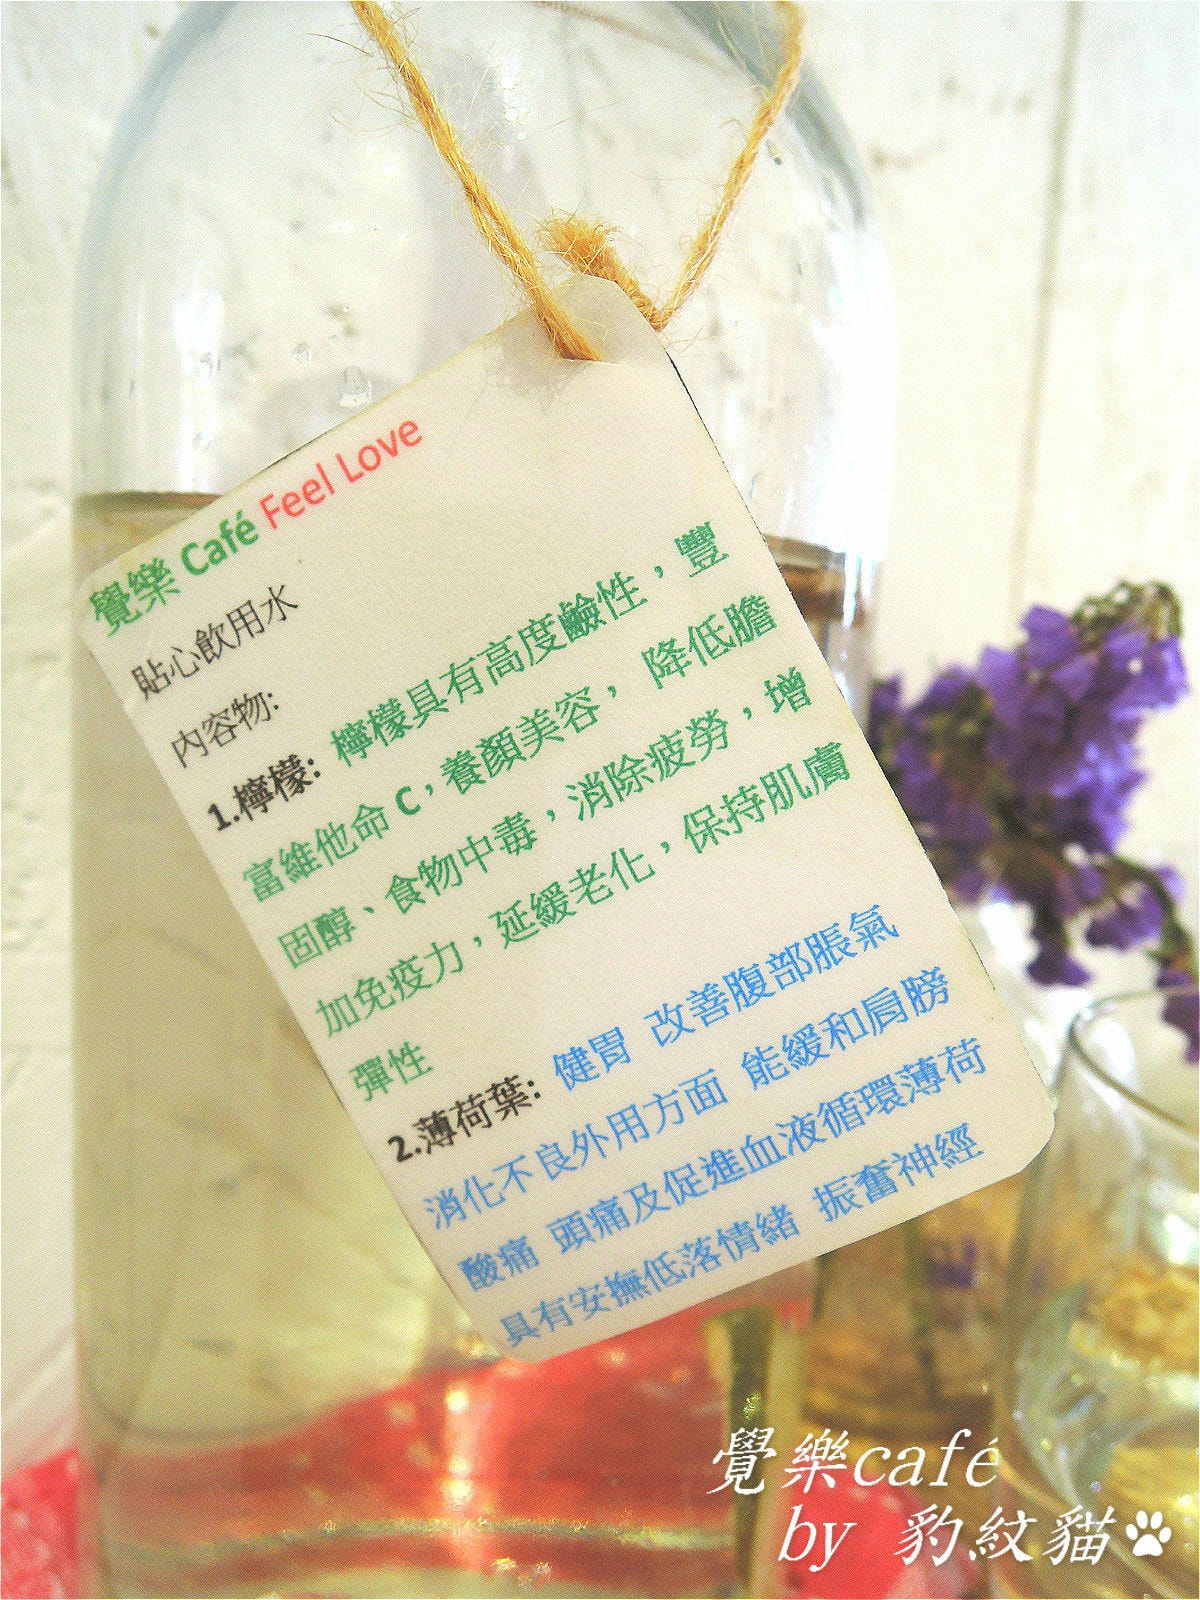 覺樂 Café Feel Love
貼心飲用水
內容物:
1.檸檬: 檸檬具有高度鹼性，豐
富維他命 C，養顏美容， 降低膽
固醇、食物中毒，消除疲勞，增
加免疫力，延緩老化，保持肌膚
彈性
2.薄荷葉: 健胃 改善腹部脹氣
消化不良外用方面 能緩和肩膀
酸痛 頭痛及促進血液循環薄荷
具有安撫低落情緒 振奮神經
覺樂café
by 豹紋貓